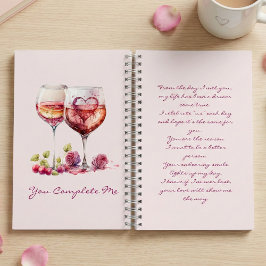 You Complete Me
From the day I met you,
my life has been a dream
come true.
I celebrate "us" each day
and hope it's the same for
you.
You are the reason
I want to be a better
person.
Your endearing smile
lights up my day.
I know if I'm ever lost,
your love will show me
the way.